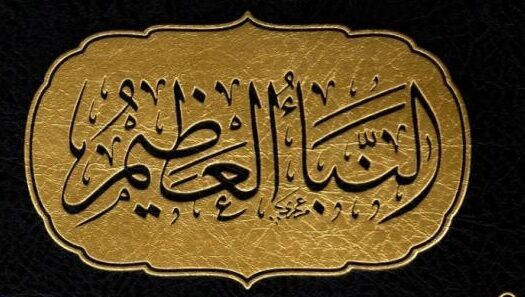 النَّبَأُ العَظِيمُ